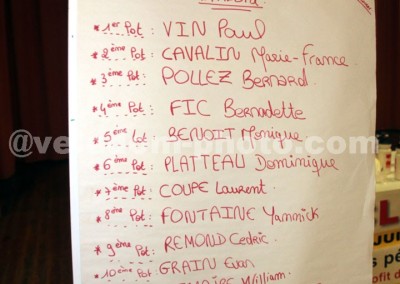 * 1er Pot : VIN Paul
* 2ème Pot : CAVALIN Marie-France
* 3ème Pot : POLLEZ Bernard
* 4ème Pot : FIC Bernadette
* 5ème Lot : BENOIT Monique
* 6ème Pot : PLATTEAU Dominique
* 7ème Pot : COUPE Laurent
* 8ème Pot : FONTAINE Yannick
* 9ème Pot : REMOND Cedric
* 10ème Pot : GRAIN Evan
William